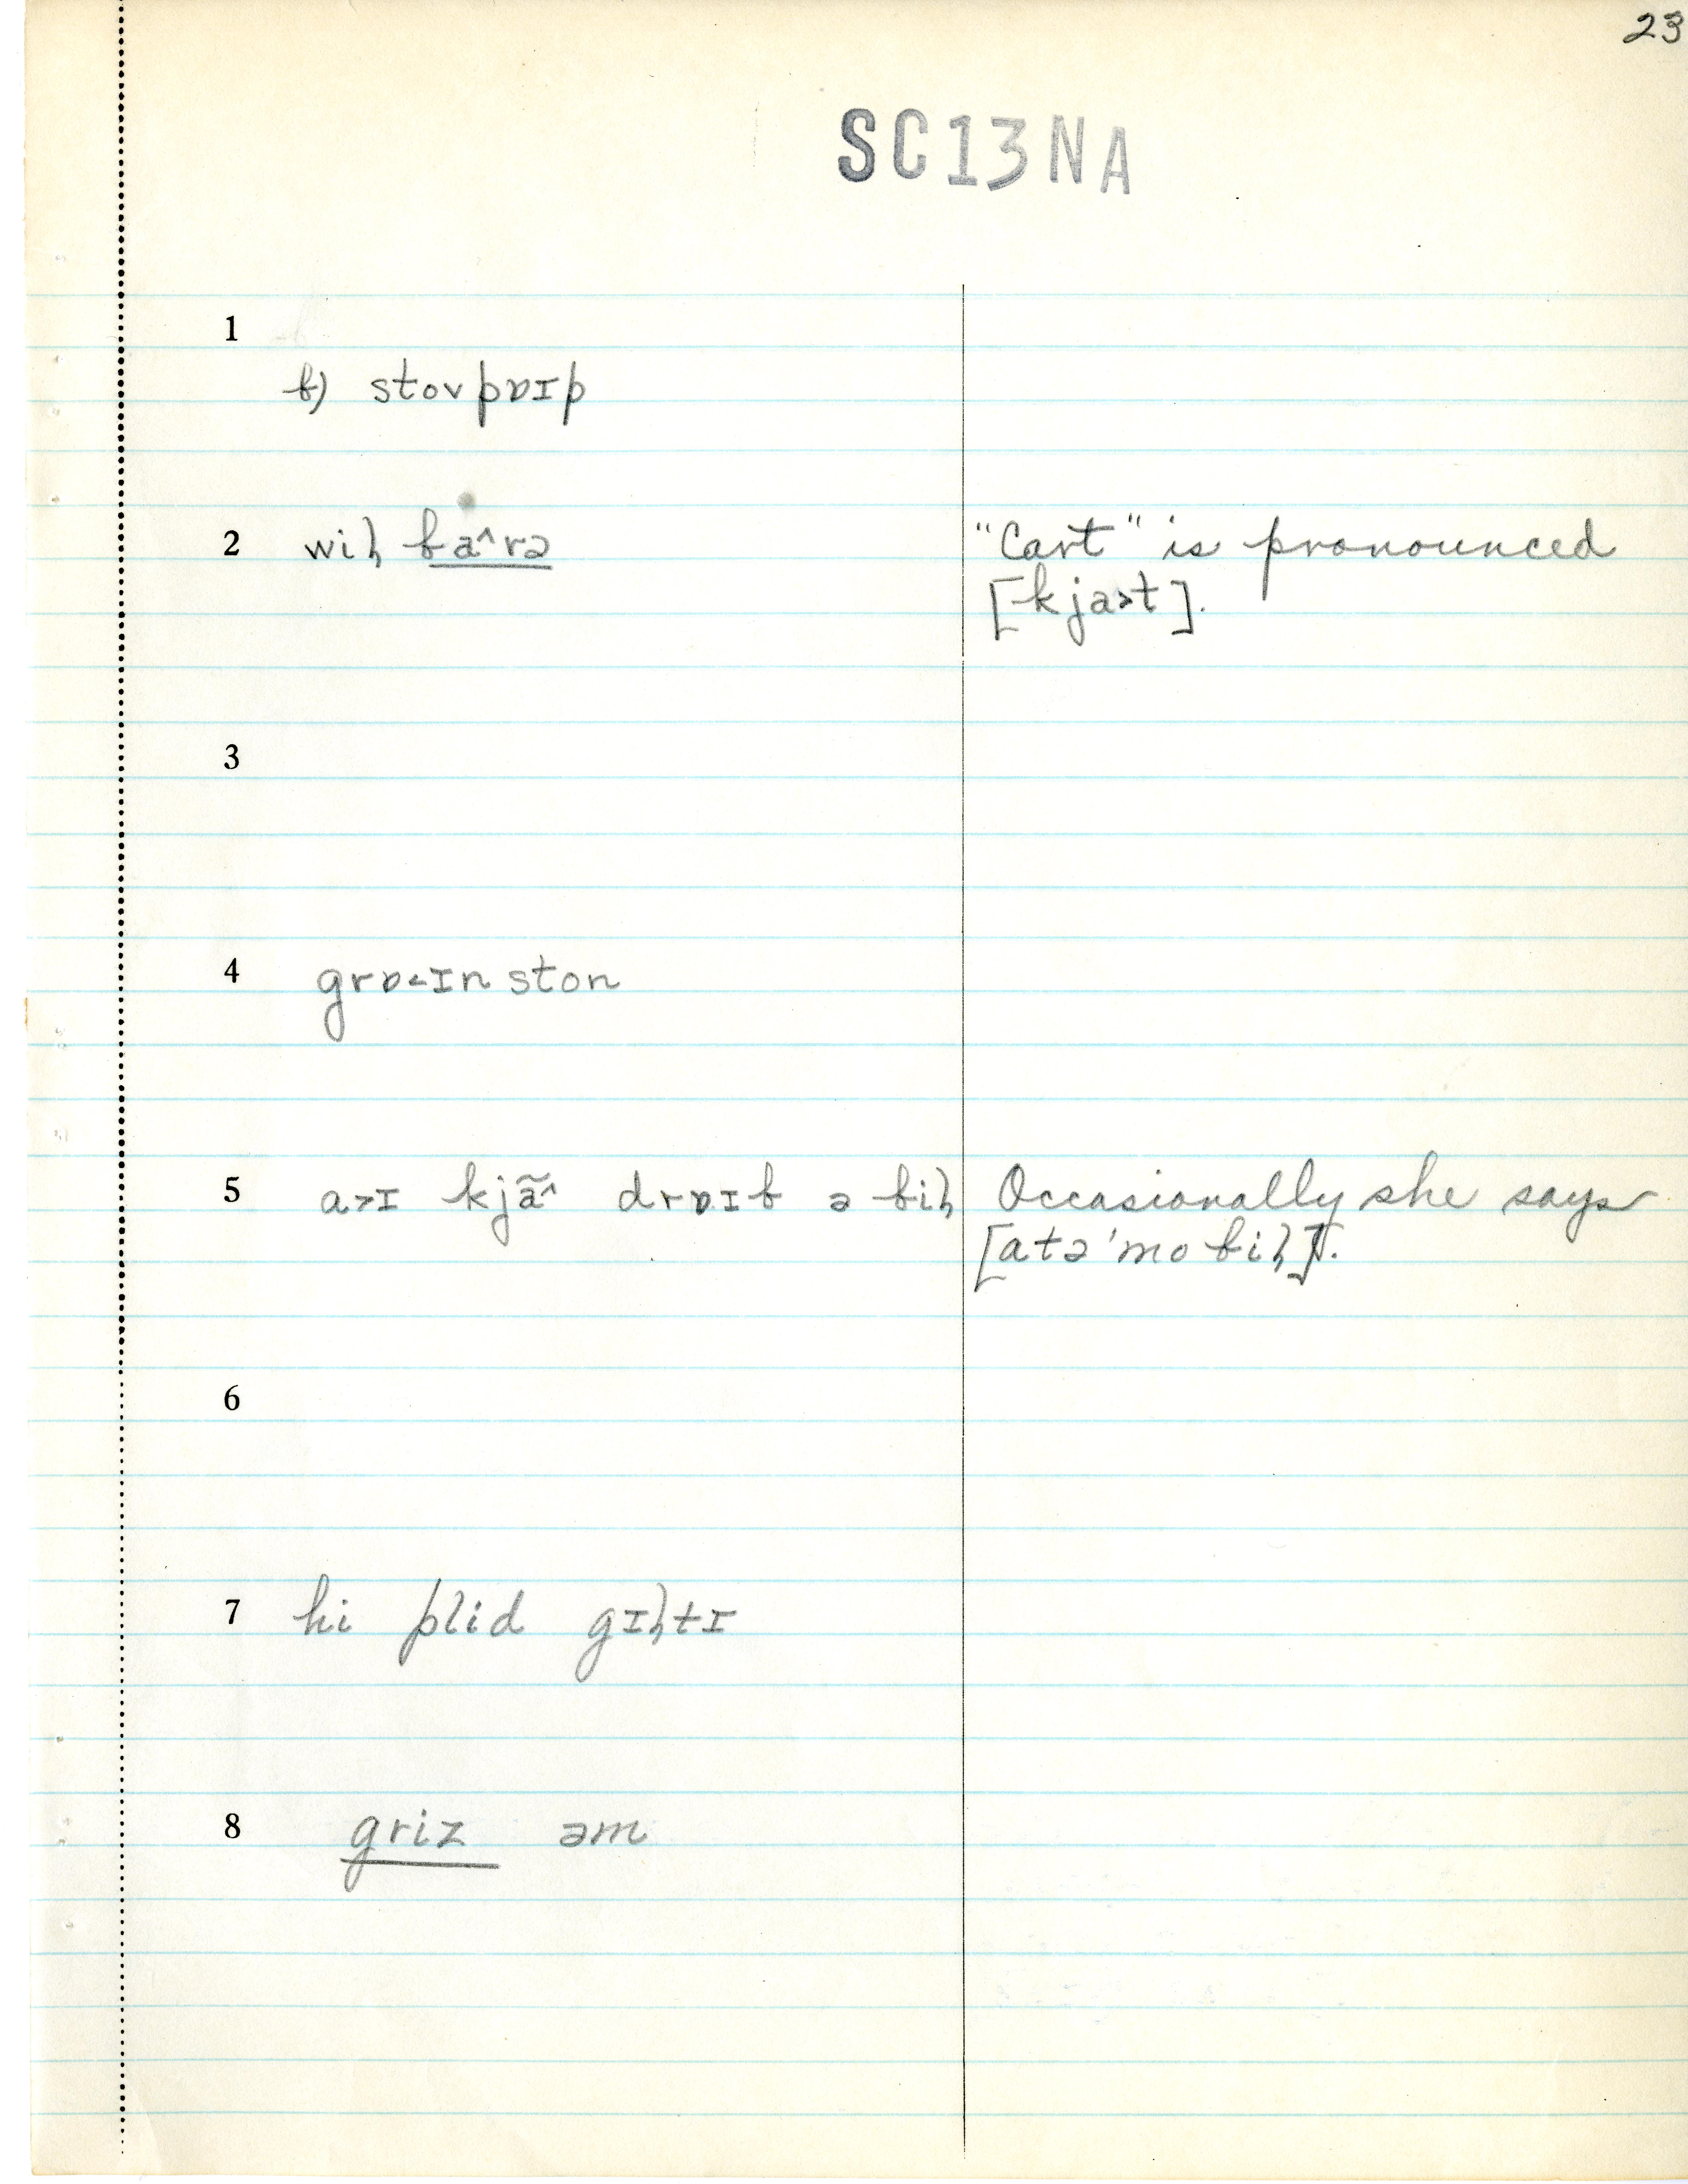 23
SC13NA
1
b) stovpɒɪp
2 wil̡ ba^rə "Cart" is pronounced
[kja>t].
3
4 grɒ<ɪn ston
5 a>ɪ kjã^ drɒɪb ə bil̡ Occasionally she says
[atə'mobil̡].
6
7 hi plid gɪl̡tɪ
8 griz əm